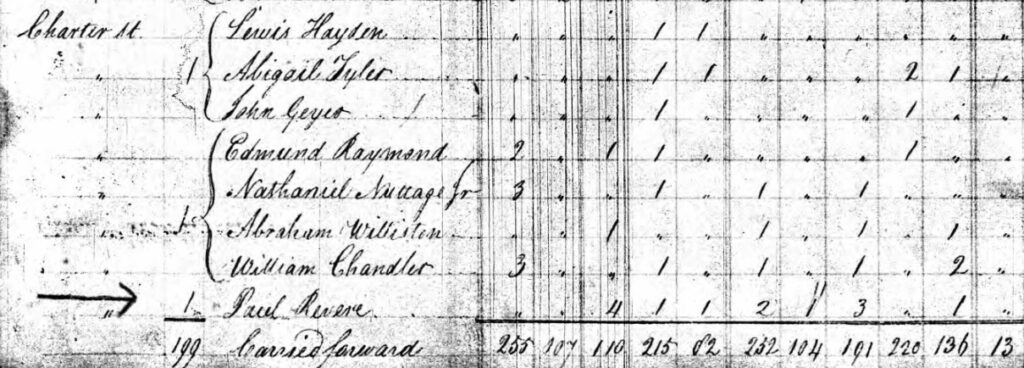 Charter St. Lewis Hayden " " " 1 1 " " " " " "
" 1 Abigail Tyler " " " 1 1 " " " 2 1 "
" John Geyer " " " 1 " " " " 1 " "
" Edmund Raymond 2 " 1 1 " " " " 1 " "
" Nathaniel Nuttage Jr 3 " " 1 " 1 " 1 " " "
" 1 Abraham Williston " " 1 " " 1 " 1 " 1 "
" William Chandler 3 " " 1 " 1 " 1 " 2 "
" 1 Paul Revere " " 4 1 1 2 1 3 " 1 "
199 Carried forward 255 107 110 215 82 232 104 191 220 136 13